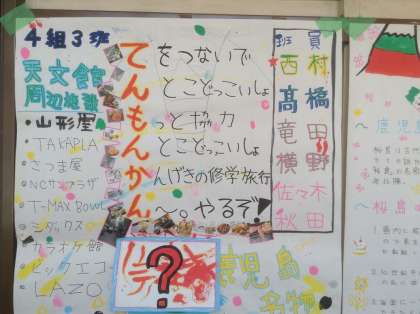 4組3班
天文館
周辺施設
・山形屋
・TAKAPLA
・さつま屋
・NCサンプラザ
・T-MAX BOWL
・シダックス
・カラオケ館
・ビックエコー
・LAZO
てをつないで
んとこどっこいしょ
もっと協力
んとこどっこいしょ
かんげきの修学旅行
ん〜。やるぞ!
班員
西村
髙橋
竜田
横野
佐々木
秋田
?
鹿児島
名物
〜鹿児島
〜桜島